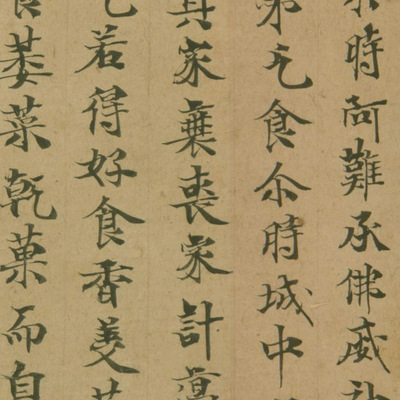 尒時阿難承佛威神
第乞食尒時城中
其家衰喪家計
乞若得好食香美
食萎菜乾菓而自